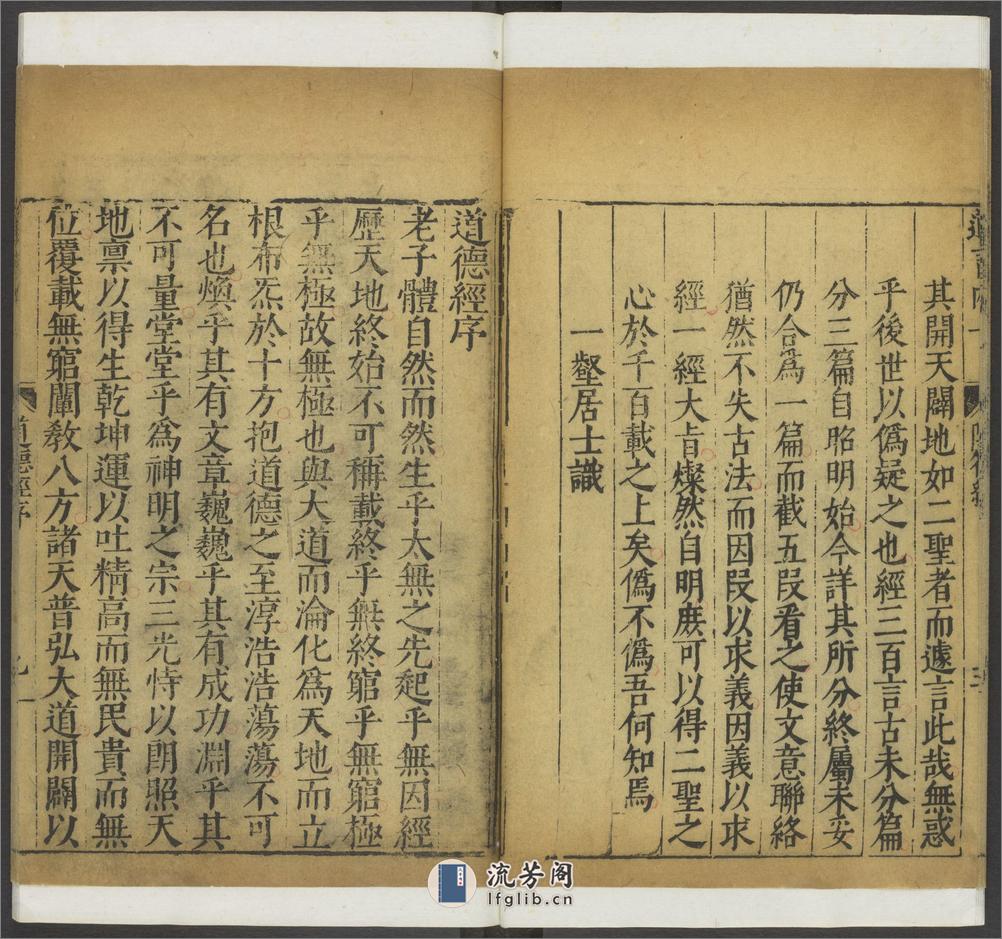 其開天闢地如二聖者而遽言此哉無惑
乎後世以僞疑之也經三百言古未分篇
分三篇自昭明始今詳其所分終屬未妥
仍合爲一篇而截五段看之使文意聯絡
猶然不失古法而因段以求義因義以求
經一經大旨燦然自明庶可以得二聖之
心於千百載之上矣僞不僞吾何知焉
一壑居士識
道德經序
老子體自然而然生乎太無之先起乎無因經
歷天地終始不可稱載終乎無終窮乎無窮極
乎無極故無極也與大道而淪化爲天地而立
根布炁於十方抱道德之至淳浩浩蕩蕩不可
名也煥乎其有文章巍巍乎其有成功淵乎其
不可量堂堂乎爲神明之宗三光恃以朗照天
地禀以得生乾坤運以吐精高而無民貴而無
位覆載無窮闡教八方諸天普弘大道開闢以
道德經序
流芳阁
lfglib.cn